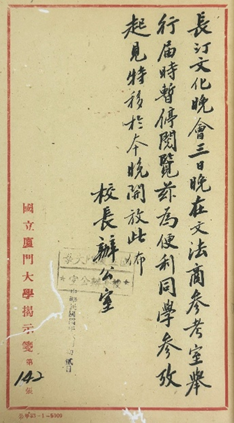 長汀文化晚會三日晚在文法商參考室舉
行屆時暫停閱覽茲為便利同學參攷
起見特移於本晚開放此佈
校長辦公室
國立廈門大學揭示箋
第142號